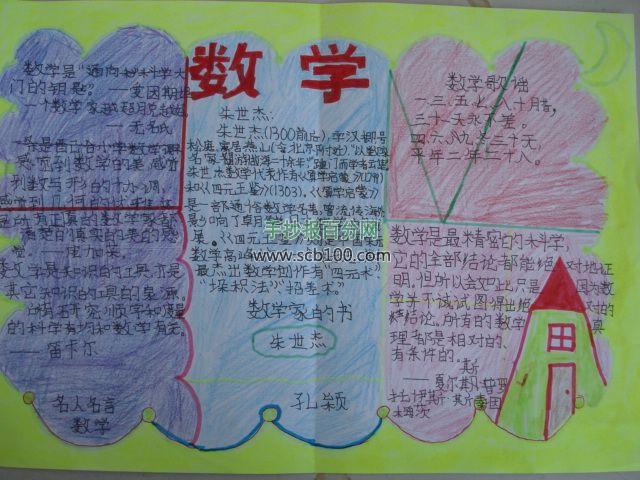 数学
数学是“通向科学大
门的钥匙”
一个数学家越超脱越好
——无名氏
感觉到数学的美,感觉
到数与形的协调,
感觉到几何的
所有真正的数学家都
清楚的真实的美的感
觉。
数学是知识的工具亦是
其它知识的工具的泉源。
所有研究顺序和度量
的科学有均和数学有关。
——笛卡尔
名人名言
数学
朱世杰:
朱世杰(1300前后),字汉卿号
松庭,寓居燕山(今北京附近),“以数学
名家周游湖海二十余年”“踵门而学者云集”
朱世杰数学代表作有《算学启蒙》(1299)
和《四元玉鉴》(1303)。《算学启蒙》
是一部通俗数学名著,曾流传海外
《四元玉鉴》
最杰出数学创作有“四元术”
“垛积法”“招差术”
数学家的书
朱世杰
孔颖
数学歌谣
一三五七八十月者,
三十一天永不差。
四六八九三十天,
平年二年二十八。
数学是最精密的科学,
它的全部结论都能绝对地证
明。但所以会如此,只是因为数
学并不试图得出绝对的
结论。所有的数学真
理都是相对的、
有条件的。
手抄报百分网
www.scb100.com